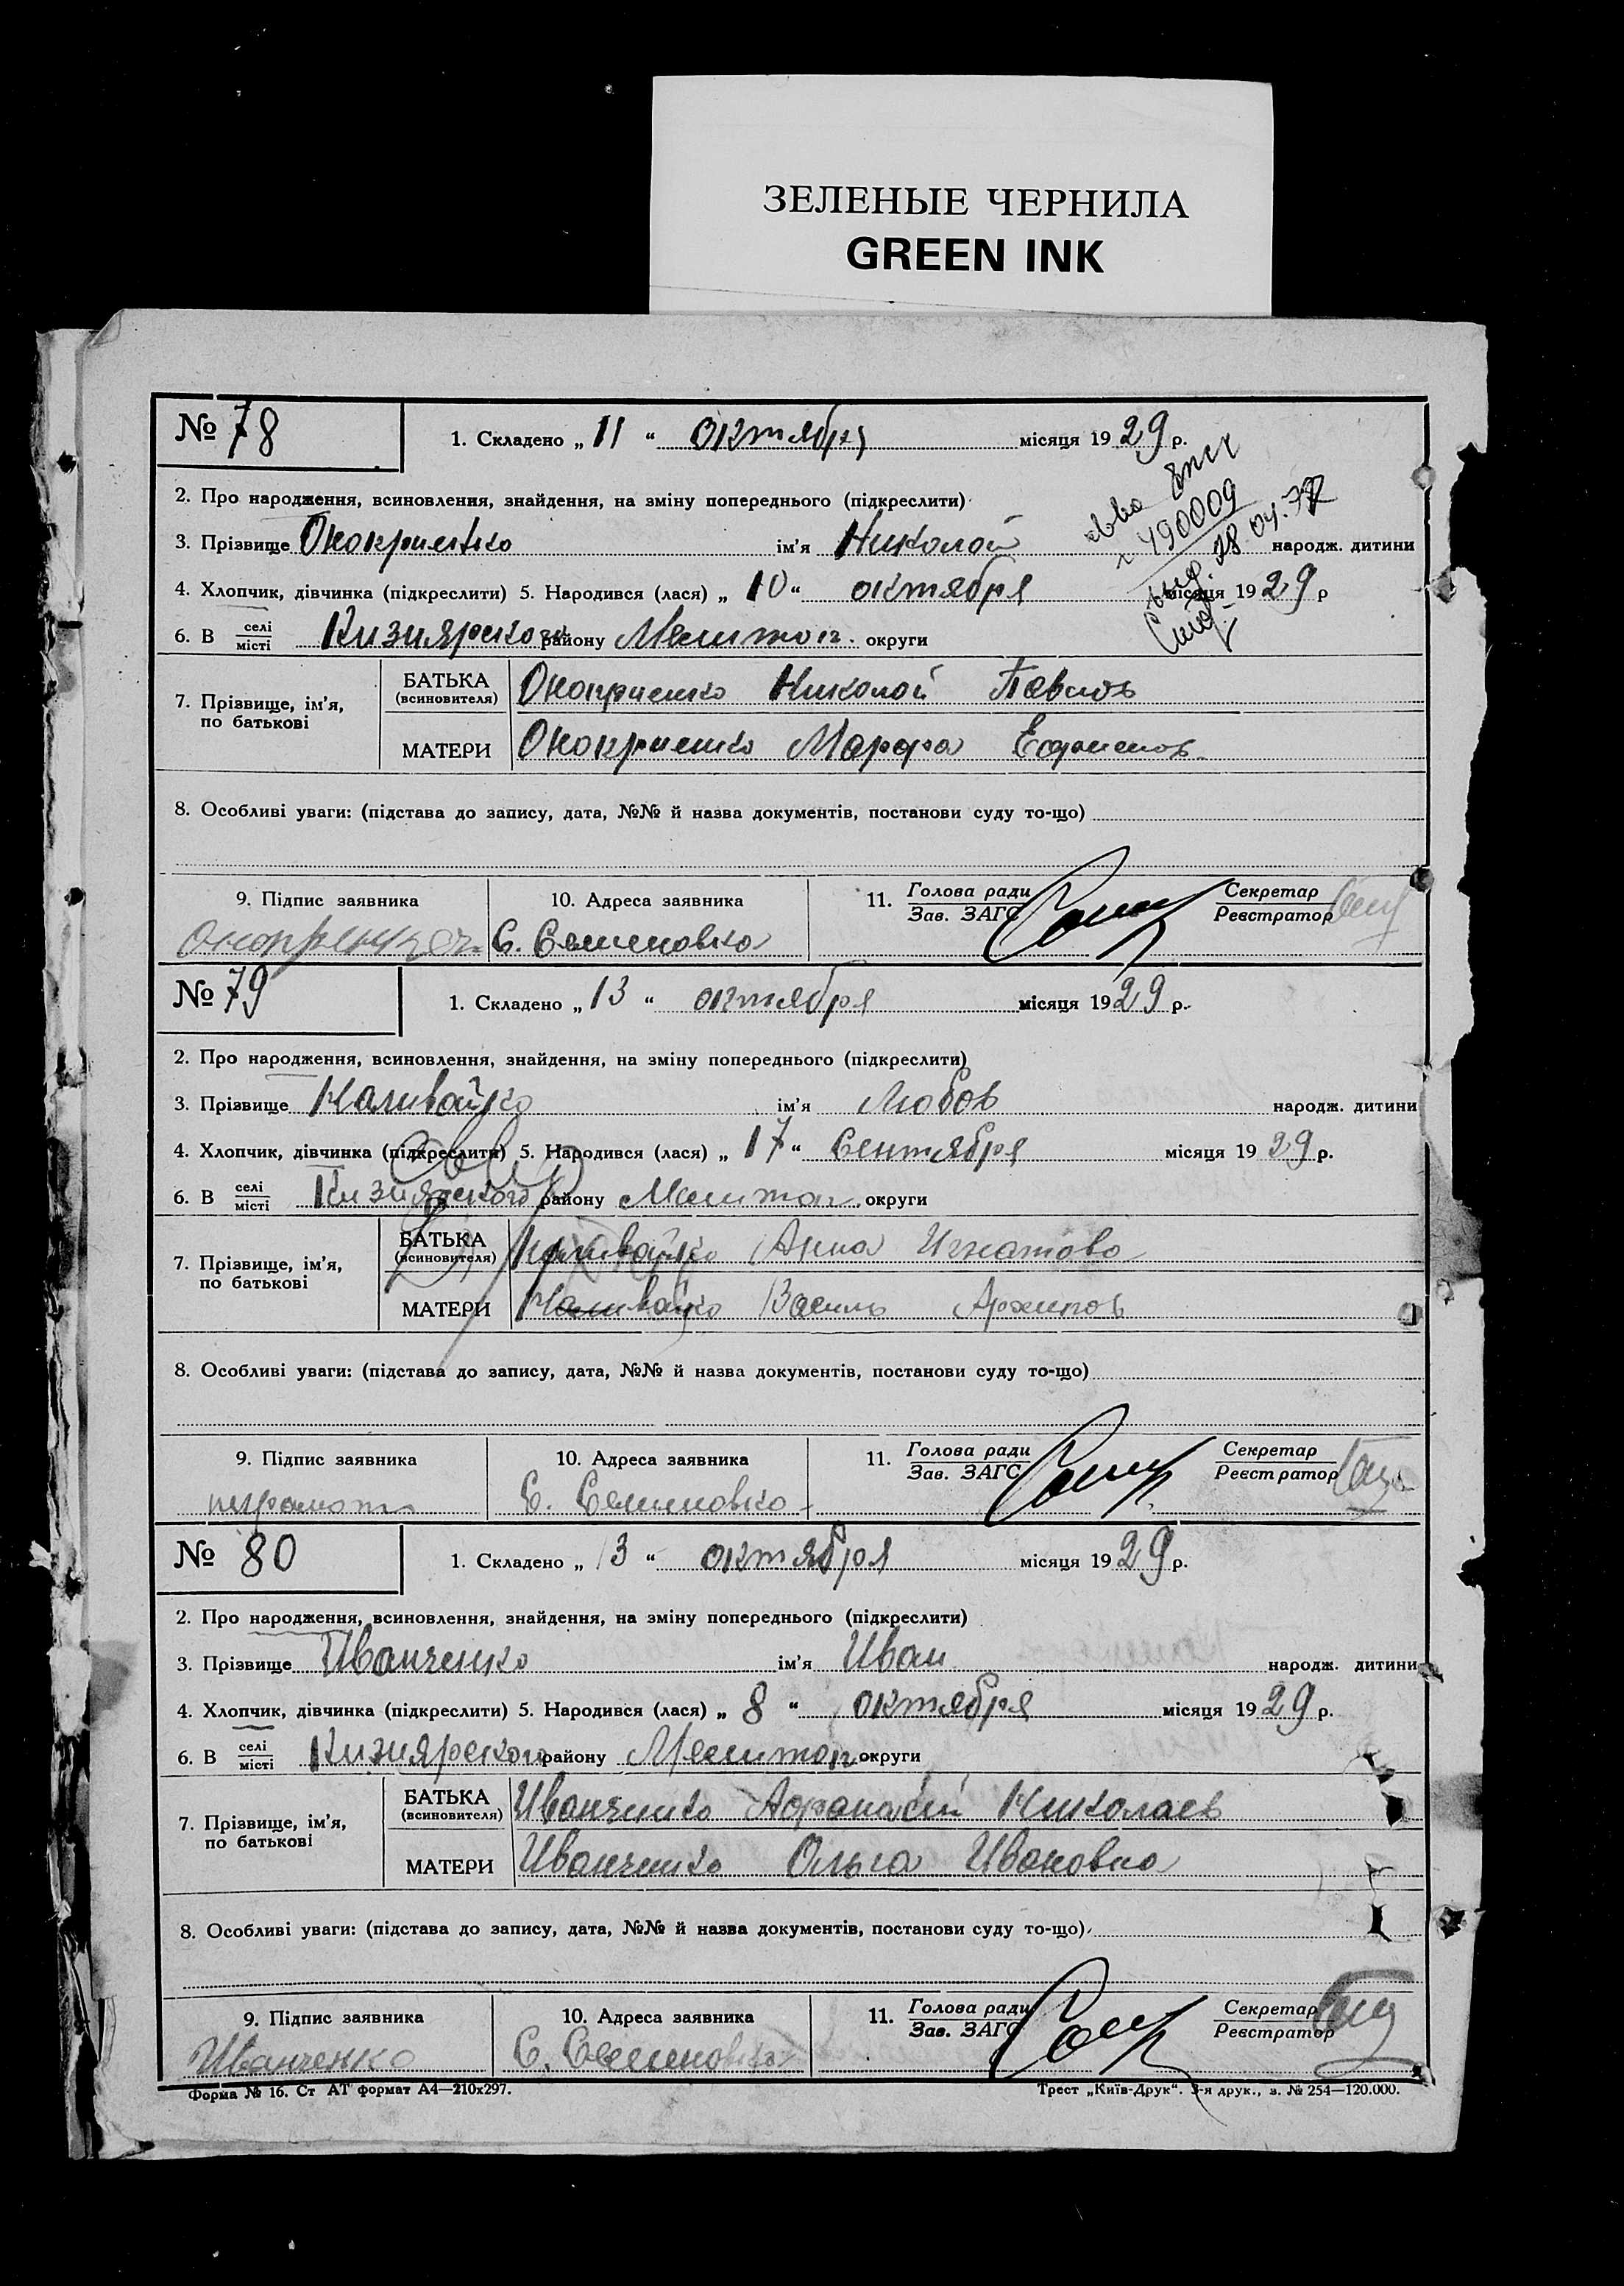 ЗЕЛЕНЫЕ ЧЕРНИЛА
GREEN INK
№ 78 1. Складено „ 11 “ октября місяця 1929 р.
2. Про народження, всиновлення, знайдення, на зміну попереднього (підкреслити)
3. Прізвище ім'я Николай народж. дитини
490009
28 04.77
4. Хлопчик, дівчинка (підкреслити) 5. Народився (лася) „ 10 “ октября місяця 1929 р
6. В селі/місті Кизиярского району Мелитоп. округи
7. Прізвище, ім'я, по батькові
БАТЬКА (всиновителя) Николай Павлов
МАТЕРИ Марфа Ефимов
8. Особливі уваги: (підстава до запису, дата, №№ й назва документів, постанови суду то-що)
9. Підпис заявника 10. Адреса заявника 11. Голова ради/Зав. ЗАГС Секретар/Реєстратор
С. Семеновка
№ 79 1. Складено „ 13 “ октября місяця 1929 р.
2. Про народження, всиновлення, знайдення, на зміну попереднього (підкреслити)
3. Прізвище Наливайко ім'я Любов народж. дитини
4. Хлопчик, дівчинка (підкреслити) 5. Народився (лася) „ 17 “ Сентября місяця 1929 р.
6. В селі/місті Кизиярского району Мелитоп. округи
7. Прізвище, ім'я, по батькові
БАТЬКА (всиновителя) Наливайко Анна Игнатова
МАТЕРИ Наливайко Василь Архипов
8. Особливі уваги: (підстава до запису, дата, №№ й назва документів, постанови суду то-що)
9. Підпис заявника 10. Адреса заявника 11. Голова ради/Зав. ЗАГС Секретар/Реєстратор
С. Семеновка
№ 80 1. Складено „ 13 “ октября місяця 1929 р.
2. Про народження, всиновлення, знайдення, на зміну попереднього (підкреслити)
3. Прізвище Иванченко ім'я Иван народж. дитини
4. Хлопчик, дівчинка (підкреслити) 5. Народився (лася) „ 8 “ октября місяця 1929 р.
6. В селі/місті Кизиярского району Мелитоп. округи
7. Прізвище, ім'я, по батькові
БАТЬКА (всиновителя) Иванченко Афанасий Николаев
МАТЕРИ Иванченко Ольга Ивановна
8. Особливі уваги: (підстава до запису, дата, №№ й назва документів, постанови суду то-що)
9. Підпис заявника 10. Адреса заявника 11. Голова ради/Зав. ЗАГС Секретар/Реєстратор
Иванченко С. Семеновка
Форма № 16. Ст АТ формат А4—210х297. Трест „Київ-Друк“. 3-я друк., з. № 254—120.000.